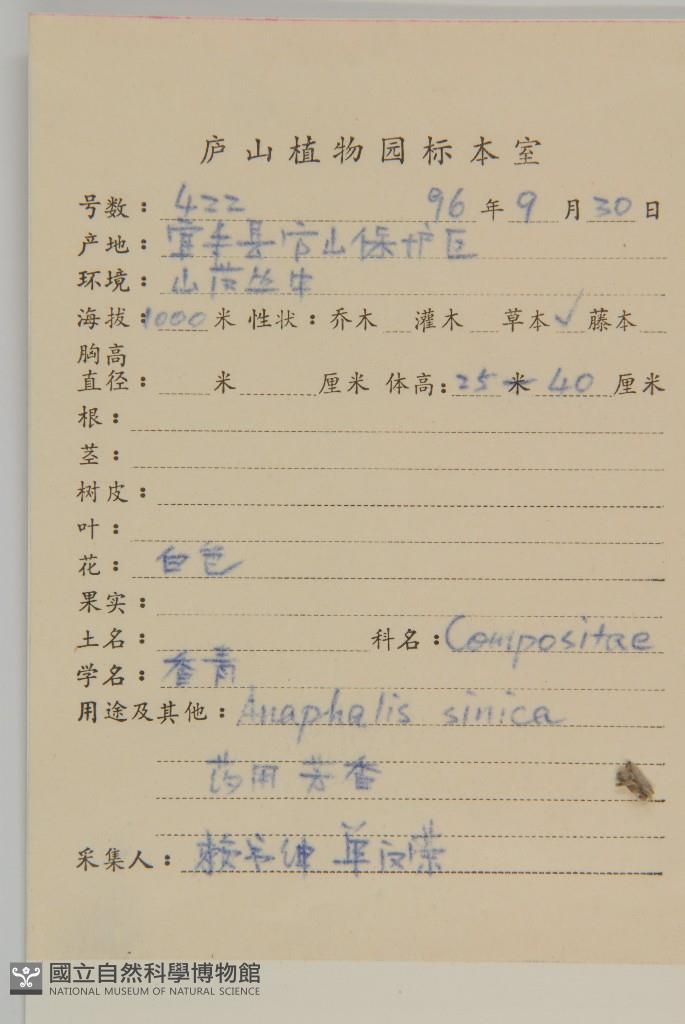 庐山植物园标本室
号数：422 96年9月30日
产地：宜丰县官山保护区
环境：山坡丛中
海拔：1000米 性状：乔木 灌木 草本✓ 藤本
胸高
直径： 米 厘米 体高：25米 40厘米
根：
茎：
树皮：
叶：
花：白色
果实：
土名： 科名：Compositae
学名：香青
用途及其他：Anaphalis sinica
药用 芳香
采集人：赖书绅 单汉荣
國立自然科學博物館
NATIONAL MUSEUM OF NATURAL SCIENCE